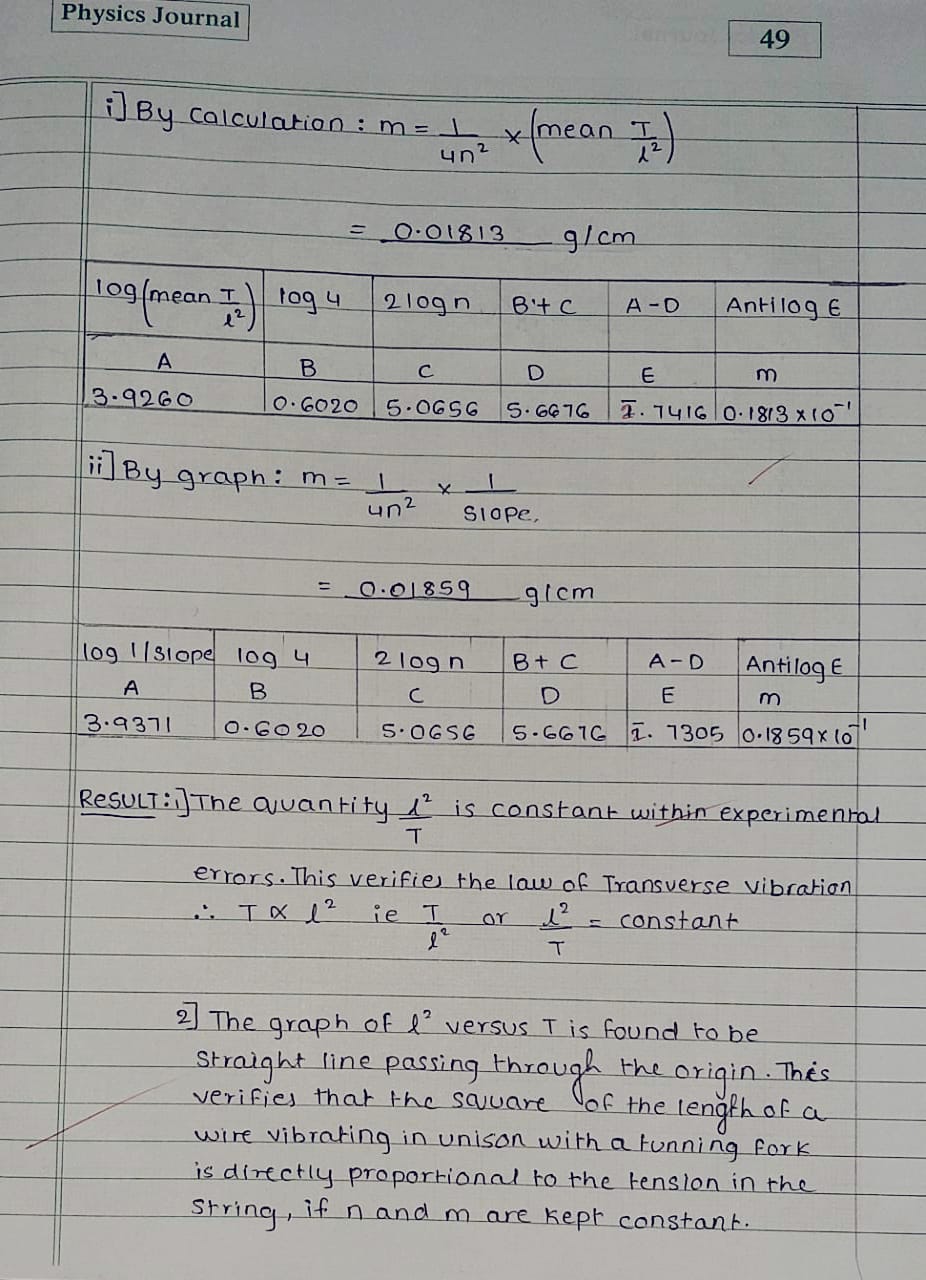 Physics Journal
49
i] By Calculation : m = 1/4n² × (mean T/l²)
= 0.01813 g/cm
log (mean T/l²) log 4 2 log n B + C A - D Antilog E
A B C D E m
3.9260 0.6020 5.0656 5.6676 2̄.7416 0.1813 × 10⁻¹
ii] By graph : m = 1/4n² × 1/slope.
= 0.01859 g/cm
log 1/slope log 4 2 log n B + C A - D Antilog E
A B C D E m
3.9371 0.6020 5.0656 5.6676 2̄. 7305 0.1859 × 10⁻¹
RESULT: i] The quantity l²/T is constant within experimental
errors. This verifies the law of Transverse vibration
∴ T ∝ l² ie T/l² or l²/T = constant
2] The graph of l² versus T is found to be
straight line passing through the origin. This
verifies that the square of the length of a
wire vibrating in unison with a tunning fork
is directly proportional to the tension in the
string, if n and m are kept constant.